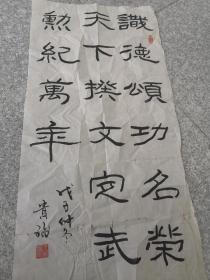 識德頌功名榮
天下揆文定武
勳紀萬年
戊子仲冬